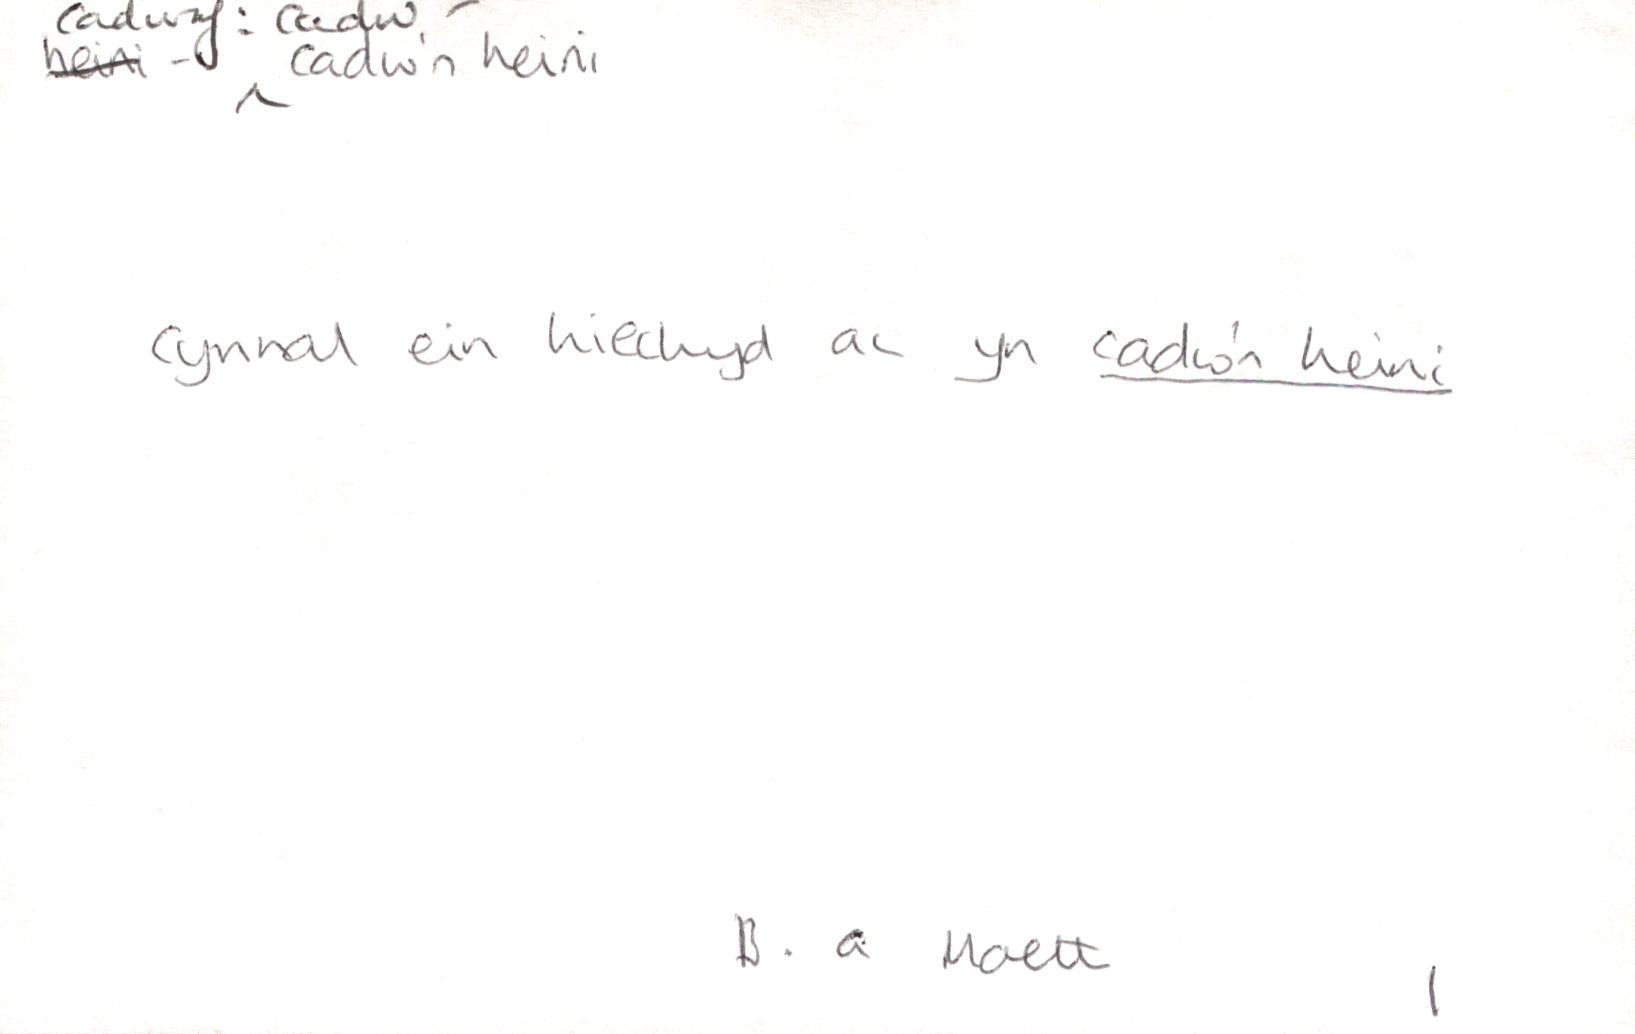 cadwaf: cadw -
heini - cadw'n heini
^
cynnal ein hiechyd ac yn cadw'n heini
B. a Maeth
1